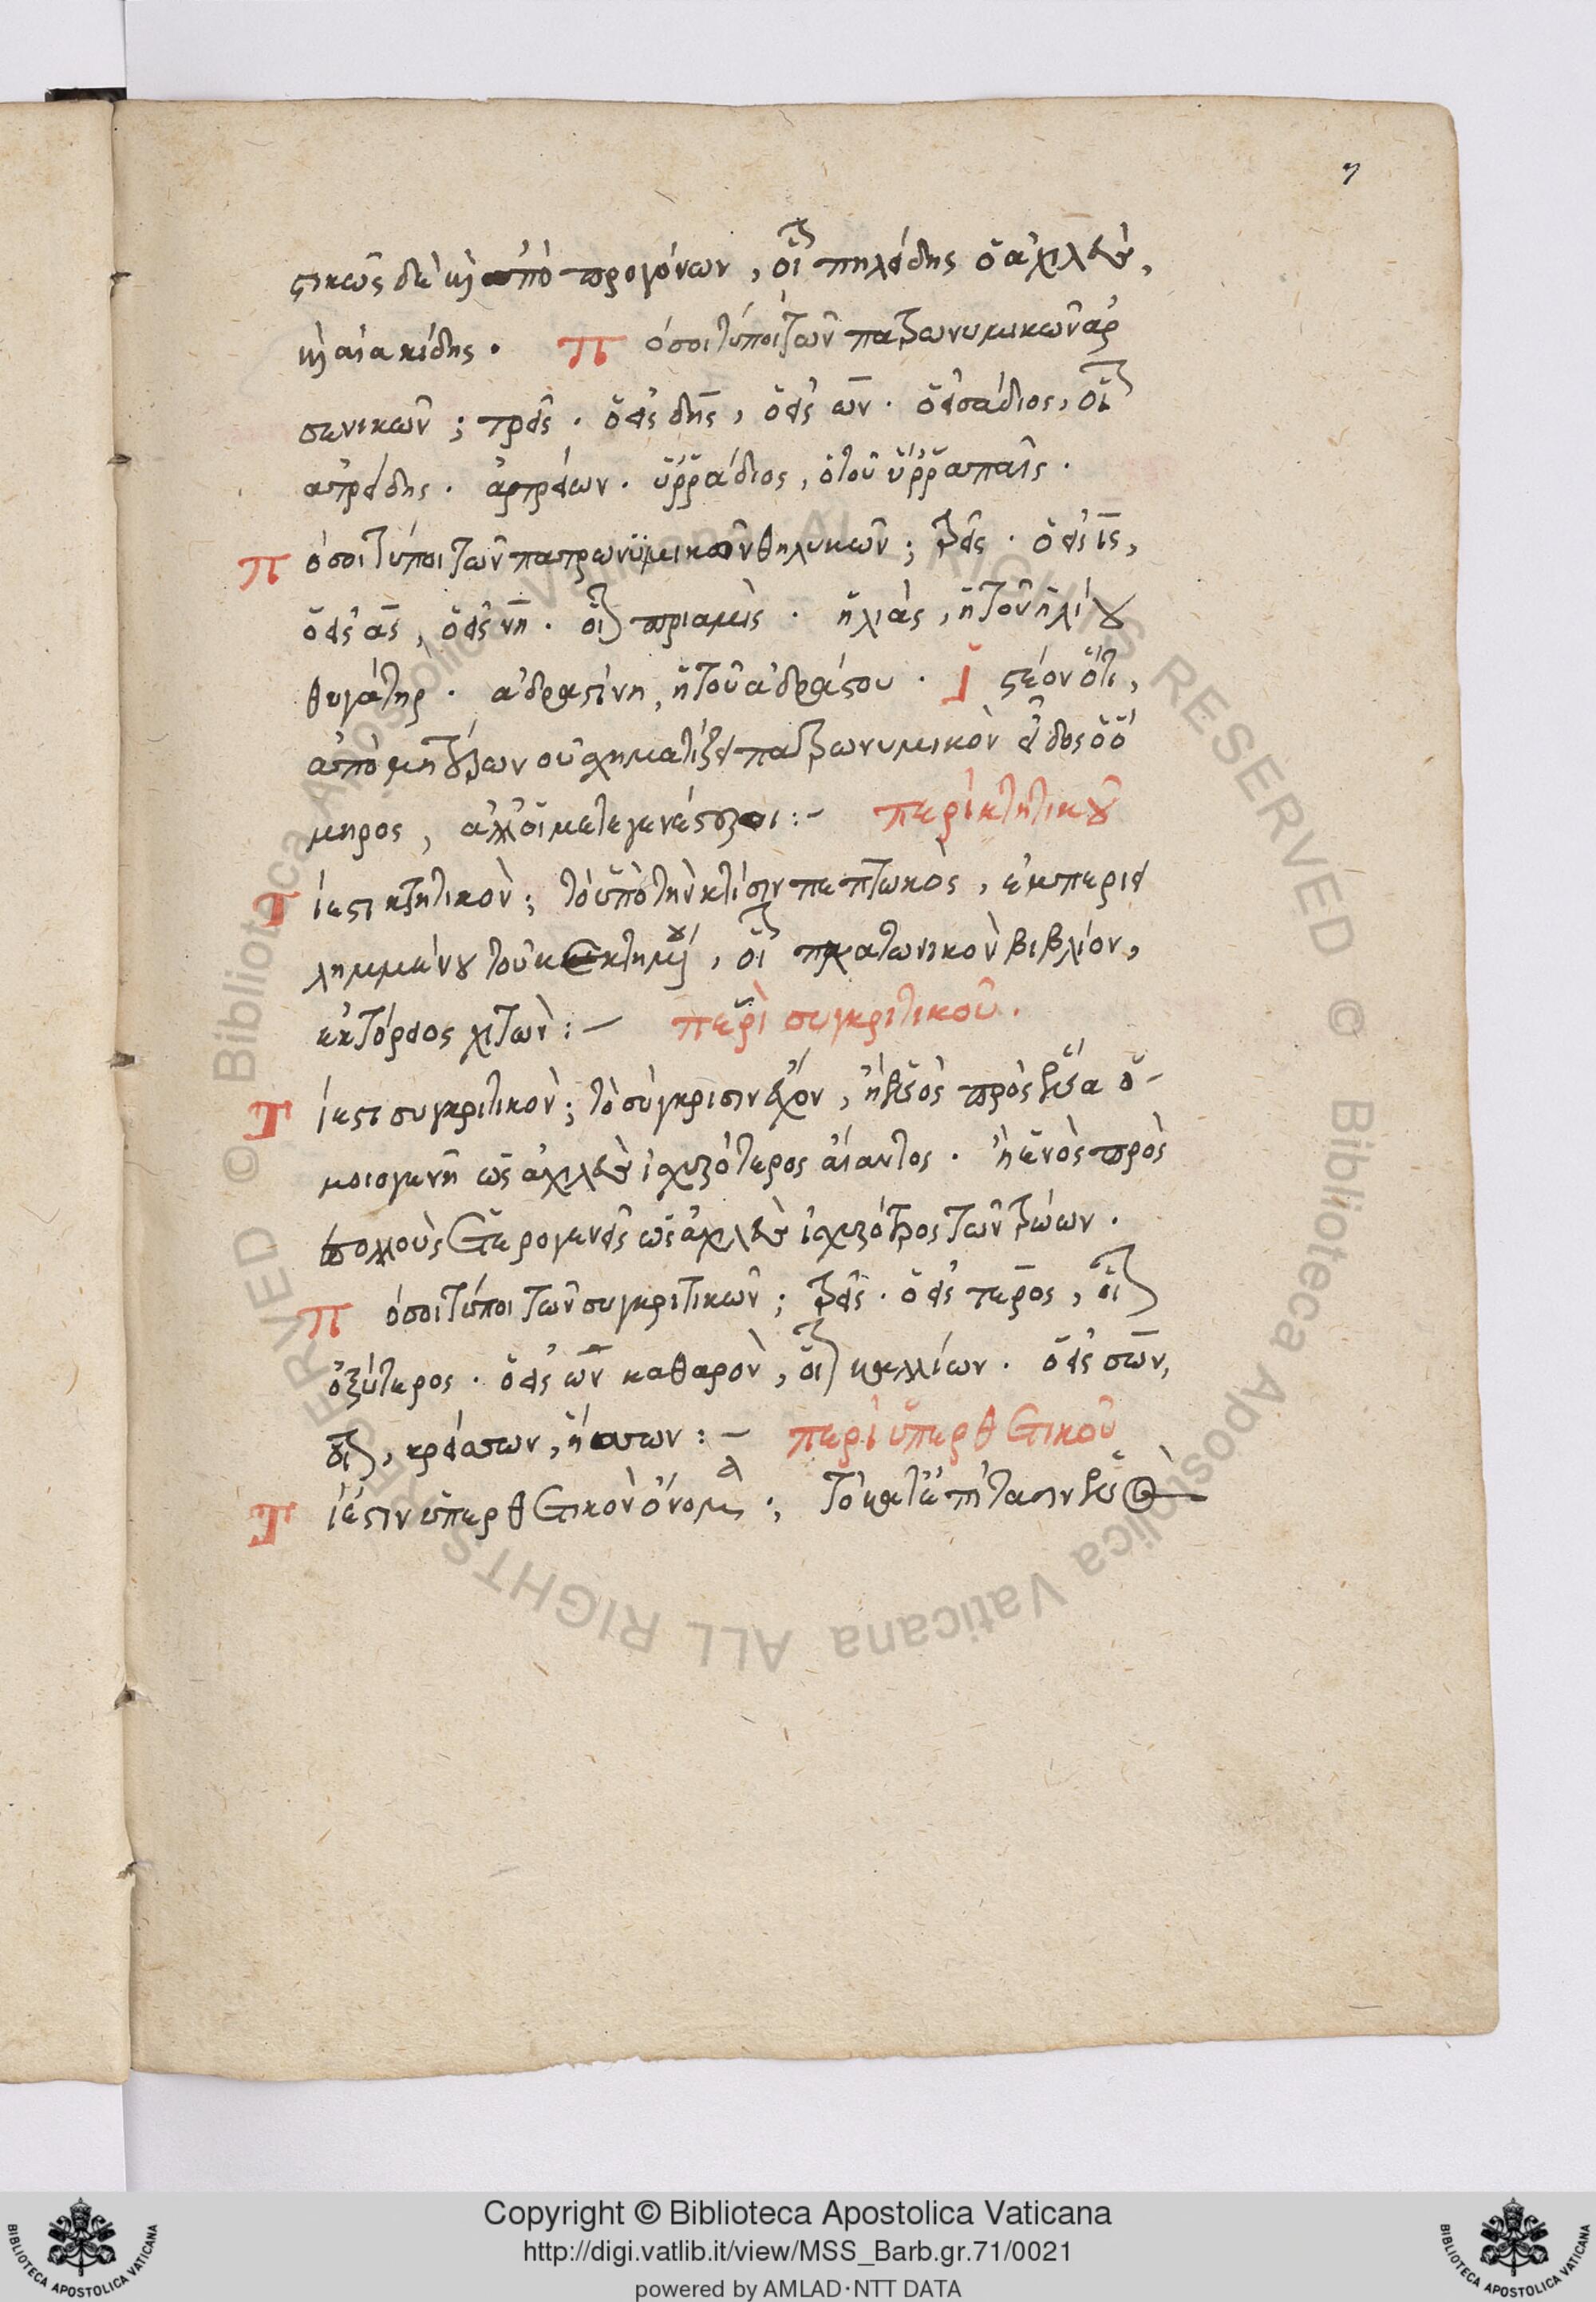 στικῶς δὲ καὶ ἀπὸ προγόνων, οἷον πηλείδης ὁ ἀχιλλεὺς,
καὶ αἰακίδης. Πόσοι τύποι τῶν πατρωνυμικῶν ἀρ
σενικῶν; τρεῖς. ὁ εἰς δης, ὁ εἰς ων. ὁ εἰς άδιος, οἷον
ἀτρείδης. ἀτρείων. ὑρράδιος, ὁ τοῦ ὕρρα παῖς.
Πόσοι τύποι τῶν πατρωνυμικῶν θηλυκῶν; τρεῖς. ὁ εἰς ις,
ὁ εἰς ας, ὁ εἰς νη. οἷον πριαμὶς. ἡλιὰς, ἡ τοῦ ἡλίου
θυγάτηρ. ἀδραστίνη, ἡ τοῦ ἀδράστου. Ἰστέον ὅτι,
ἀπὸ μητέρων οὐ σχηματίζει πατρωνυμικὸν εἶδος ὁ ὅ
μηρος, ἀλλ' οἱ μεταγενέστεροι:- περὶ κτητικοῦ
Τί ἐστι κτητικὸν; τὸ ὑπὸ τὴν κτῆσιν πεπτωκὸς, ἐμπεριει
λημμένου τοῦ κεκτημένου, οἷον πλατωνικὸν βιβλίον,
ἑκτόρεος χιτὼν:- περὶ συγκριτικοῦ.
Τί ἐστι συγκριτικὸν; τὸ σύγκρισιν ἔχον, ἢ ἑνὸς πρὸς ἕνα ὁ-
μοιογενῆ ὡς ἀχιλλεὺς ἰσχυρότερος αἴαντος. ἢ ἑνὸς πρὸς
πολλοὺς ἑτερογενεῖς ὡς ἀχιλλεὺς ἰσχυρότερος τῶν τρώων.
Πόσοι τύποι τῶν συγκριτικῶν; τρεῖς. ὁ εἰς τερος, οἷον
ὀξύτερος. ὁ εἰς ων καθαρὸν, οἷον καλλίων. ὁ εἰς σων,
οἷον, κρείσσων, ἥσσων:- περὶ ὑπερθετικοῦ
Τί ἐστιν ὑπερθετικὸν ὄνομα; τὸ κατ' ἐπίτασιν ἑνὸς
Copyright © Biblioteca Apostolica Vaticana
http://digi.vatlib.it/view/MSS_Barb.gr.71/0021
powered by AMLAD·NTT DATA